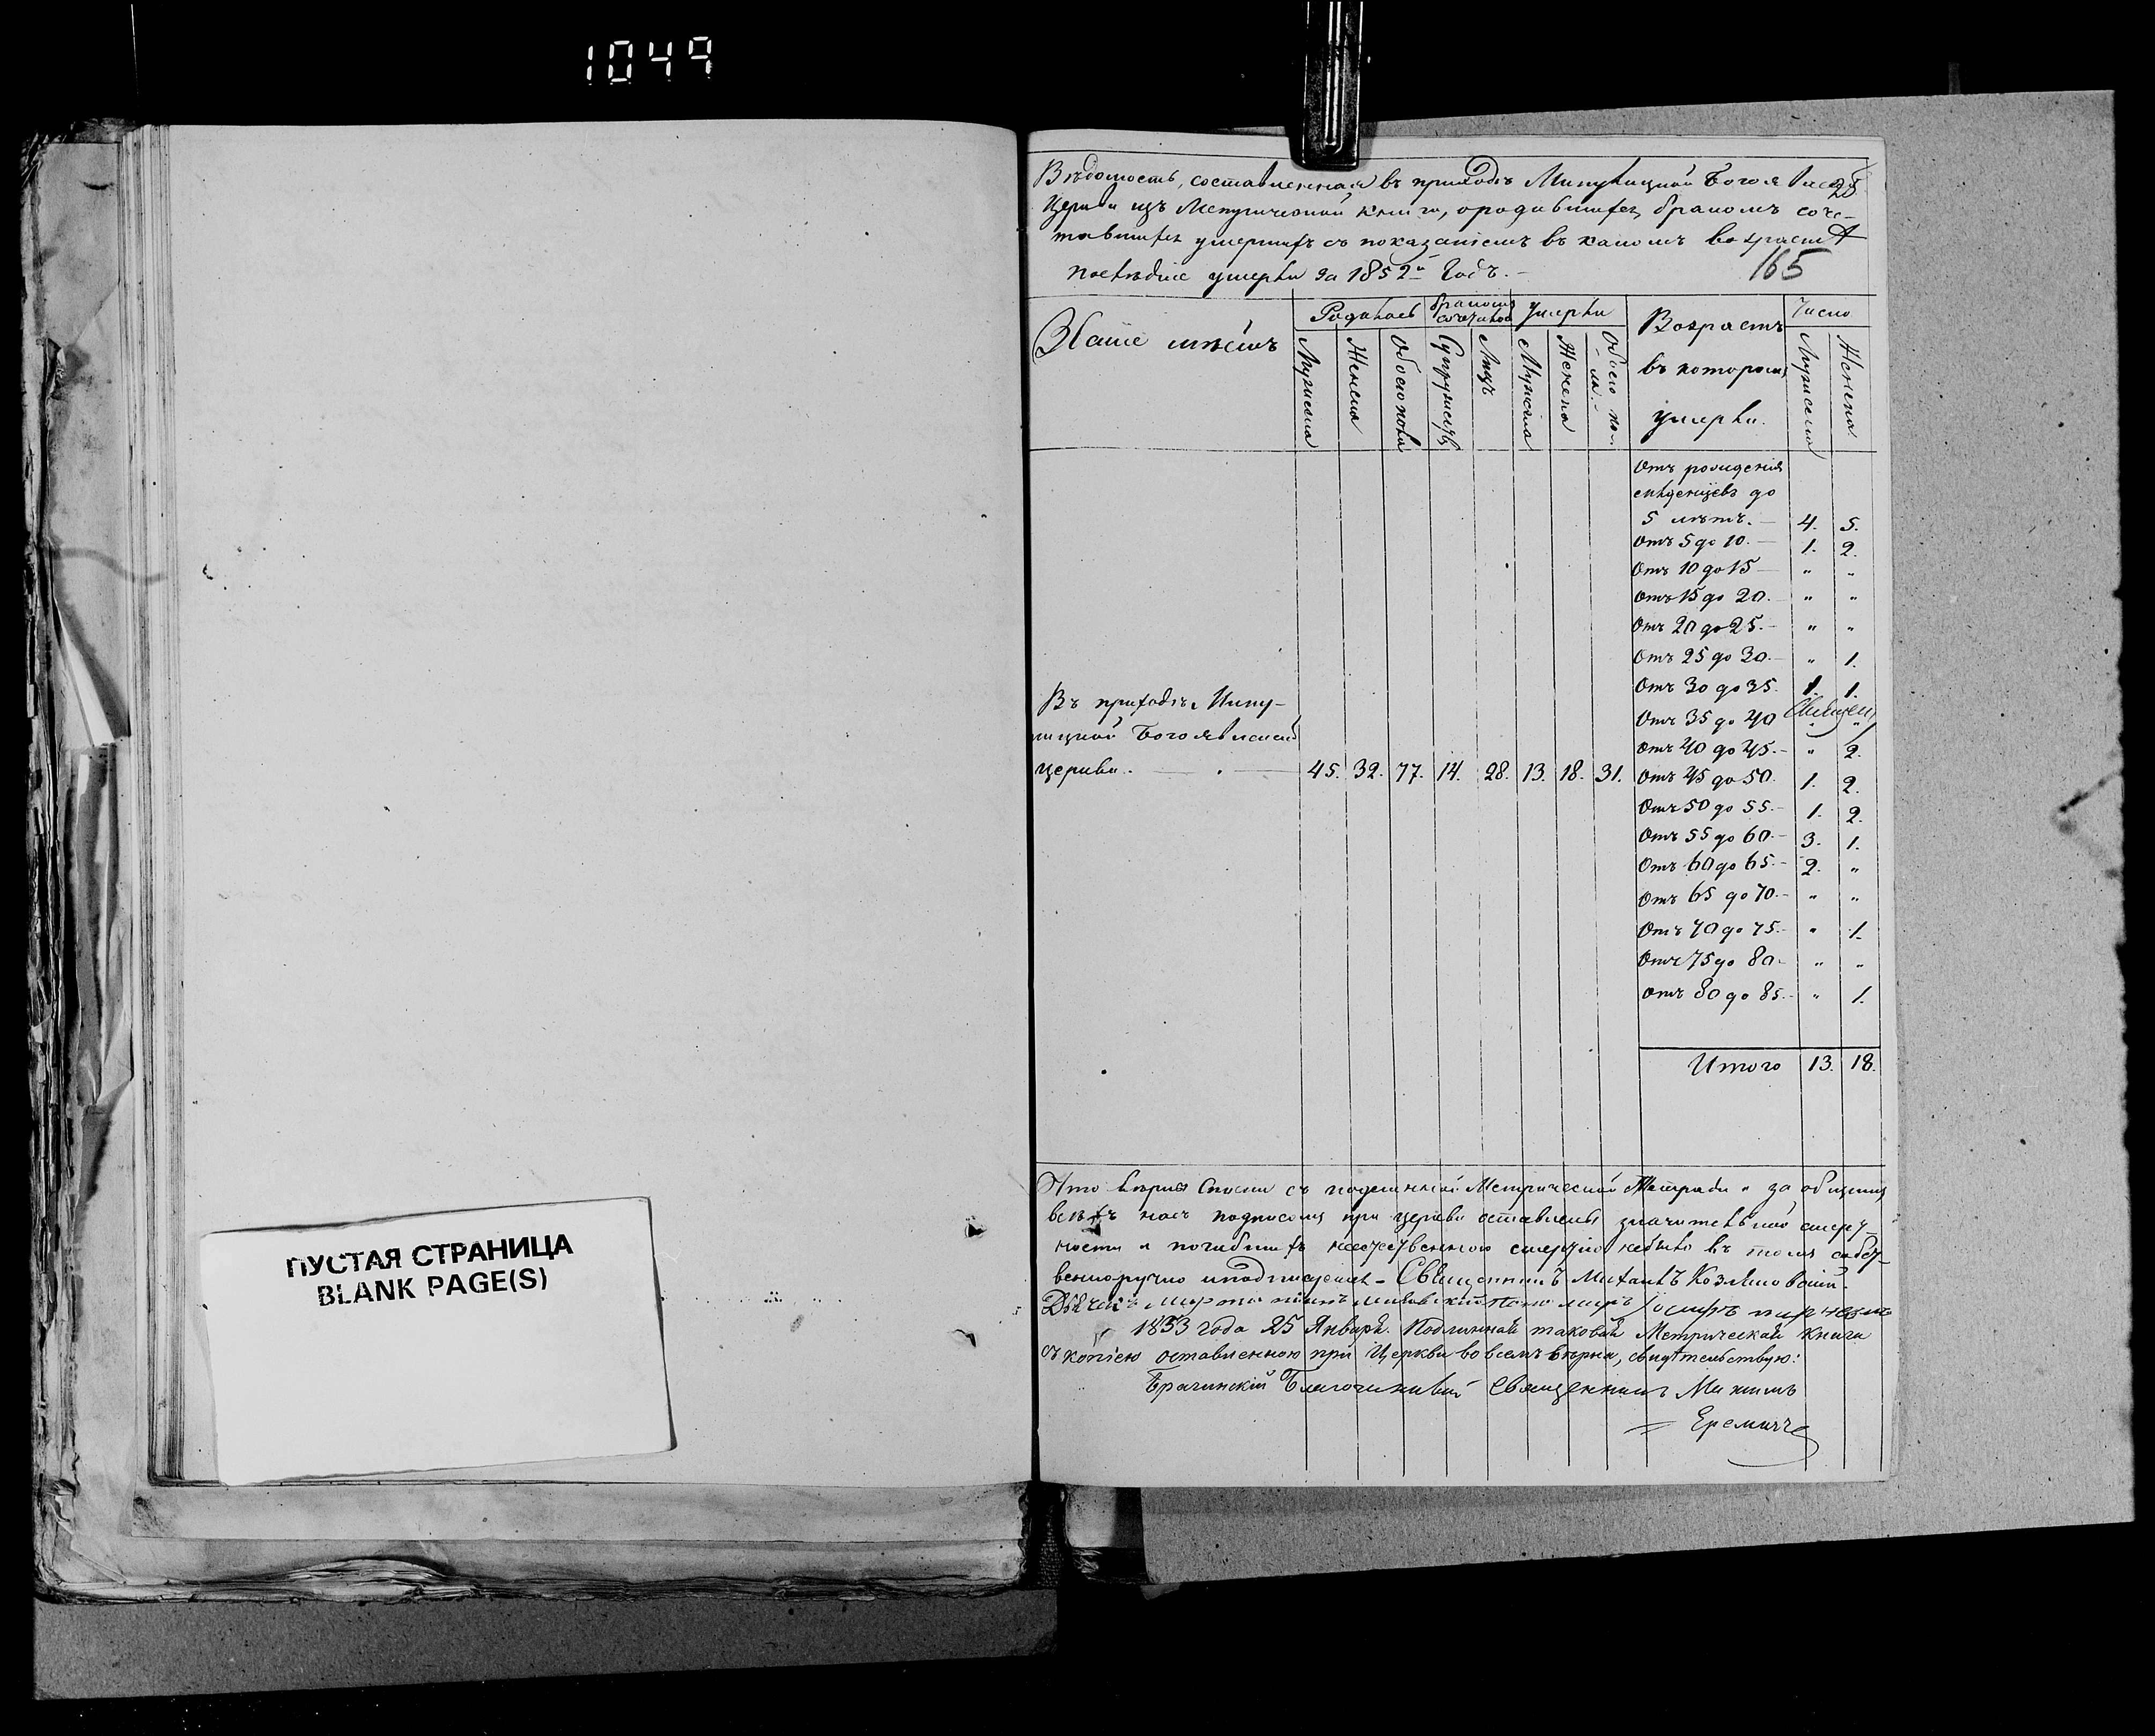 1049
ПУСТАЯ СТРАНИЦА
BLANK PAGE(S)
Вѣдомость, составленная въ приходѣ
Церкви изъ Метрической книги, о родившихся, бракомъ соче-
тавшихся умершихъ съ показаніемъ въ какомъ возрастѣ
послѣдніе умерли за 1852й Годъ.
165
Званіе мѣстъ
Родилось
бракомъ сочетано
Умерли
Возрастъ
въ которомъ
умерли.
Число
Мужеска
Женска
Обоего пола
Супружествъ
Лицъ
Мужеска
Женска
Обоего по-
ла.
Мужеска
Женска
Отъ рожденія
младенцевъ до
5 лѣтъ. 4. 5.
Отъ 5 до 10. 1. 2.
Отъ 10 до 15 " "
Отъ 15 до 20. " "
Отъ 20 до 25. " "
Отъ 25 до 30. " 1.
Отъ 30 до 35. 1. 1.
Отъ 35 до 40 " "
Отъ 40 до 45. " 2.
Отъ 45 до 50. 1. 2.
Отъ 50 до 55. 1. 2.
Отъ 55 до 60. 3. 1.
Отъ 60 до 65. 2. "
Отъ 65 до 70. " "
Отъ 70 до 75. " 1.
Отъ 75 до 80. " "
Отъ 80 до 85. " 1.
Въ приходѣ
Богоявленской
церкви. 45. 32. 77. 14. 28. 13. 18. 31.
Итого 13. 18.
Что вѣрна съ подлинной Метрической Тетради и за общимъ
всѣхъ насъ подписомъ при церкви оставлены значительной смерт
ности и погибшихъ неестественною смертію небыло въ томъ собст
венноручно и подписуемся - Священникъ Михаилъ Козляновскій
1853 года 25 Января. Подлинная таковая Метрическая книга
съ копіею оставленною при Церкви во всемъ вѣрна, свидѣтельствую:
Благочинный Священникъ